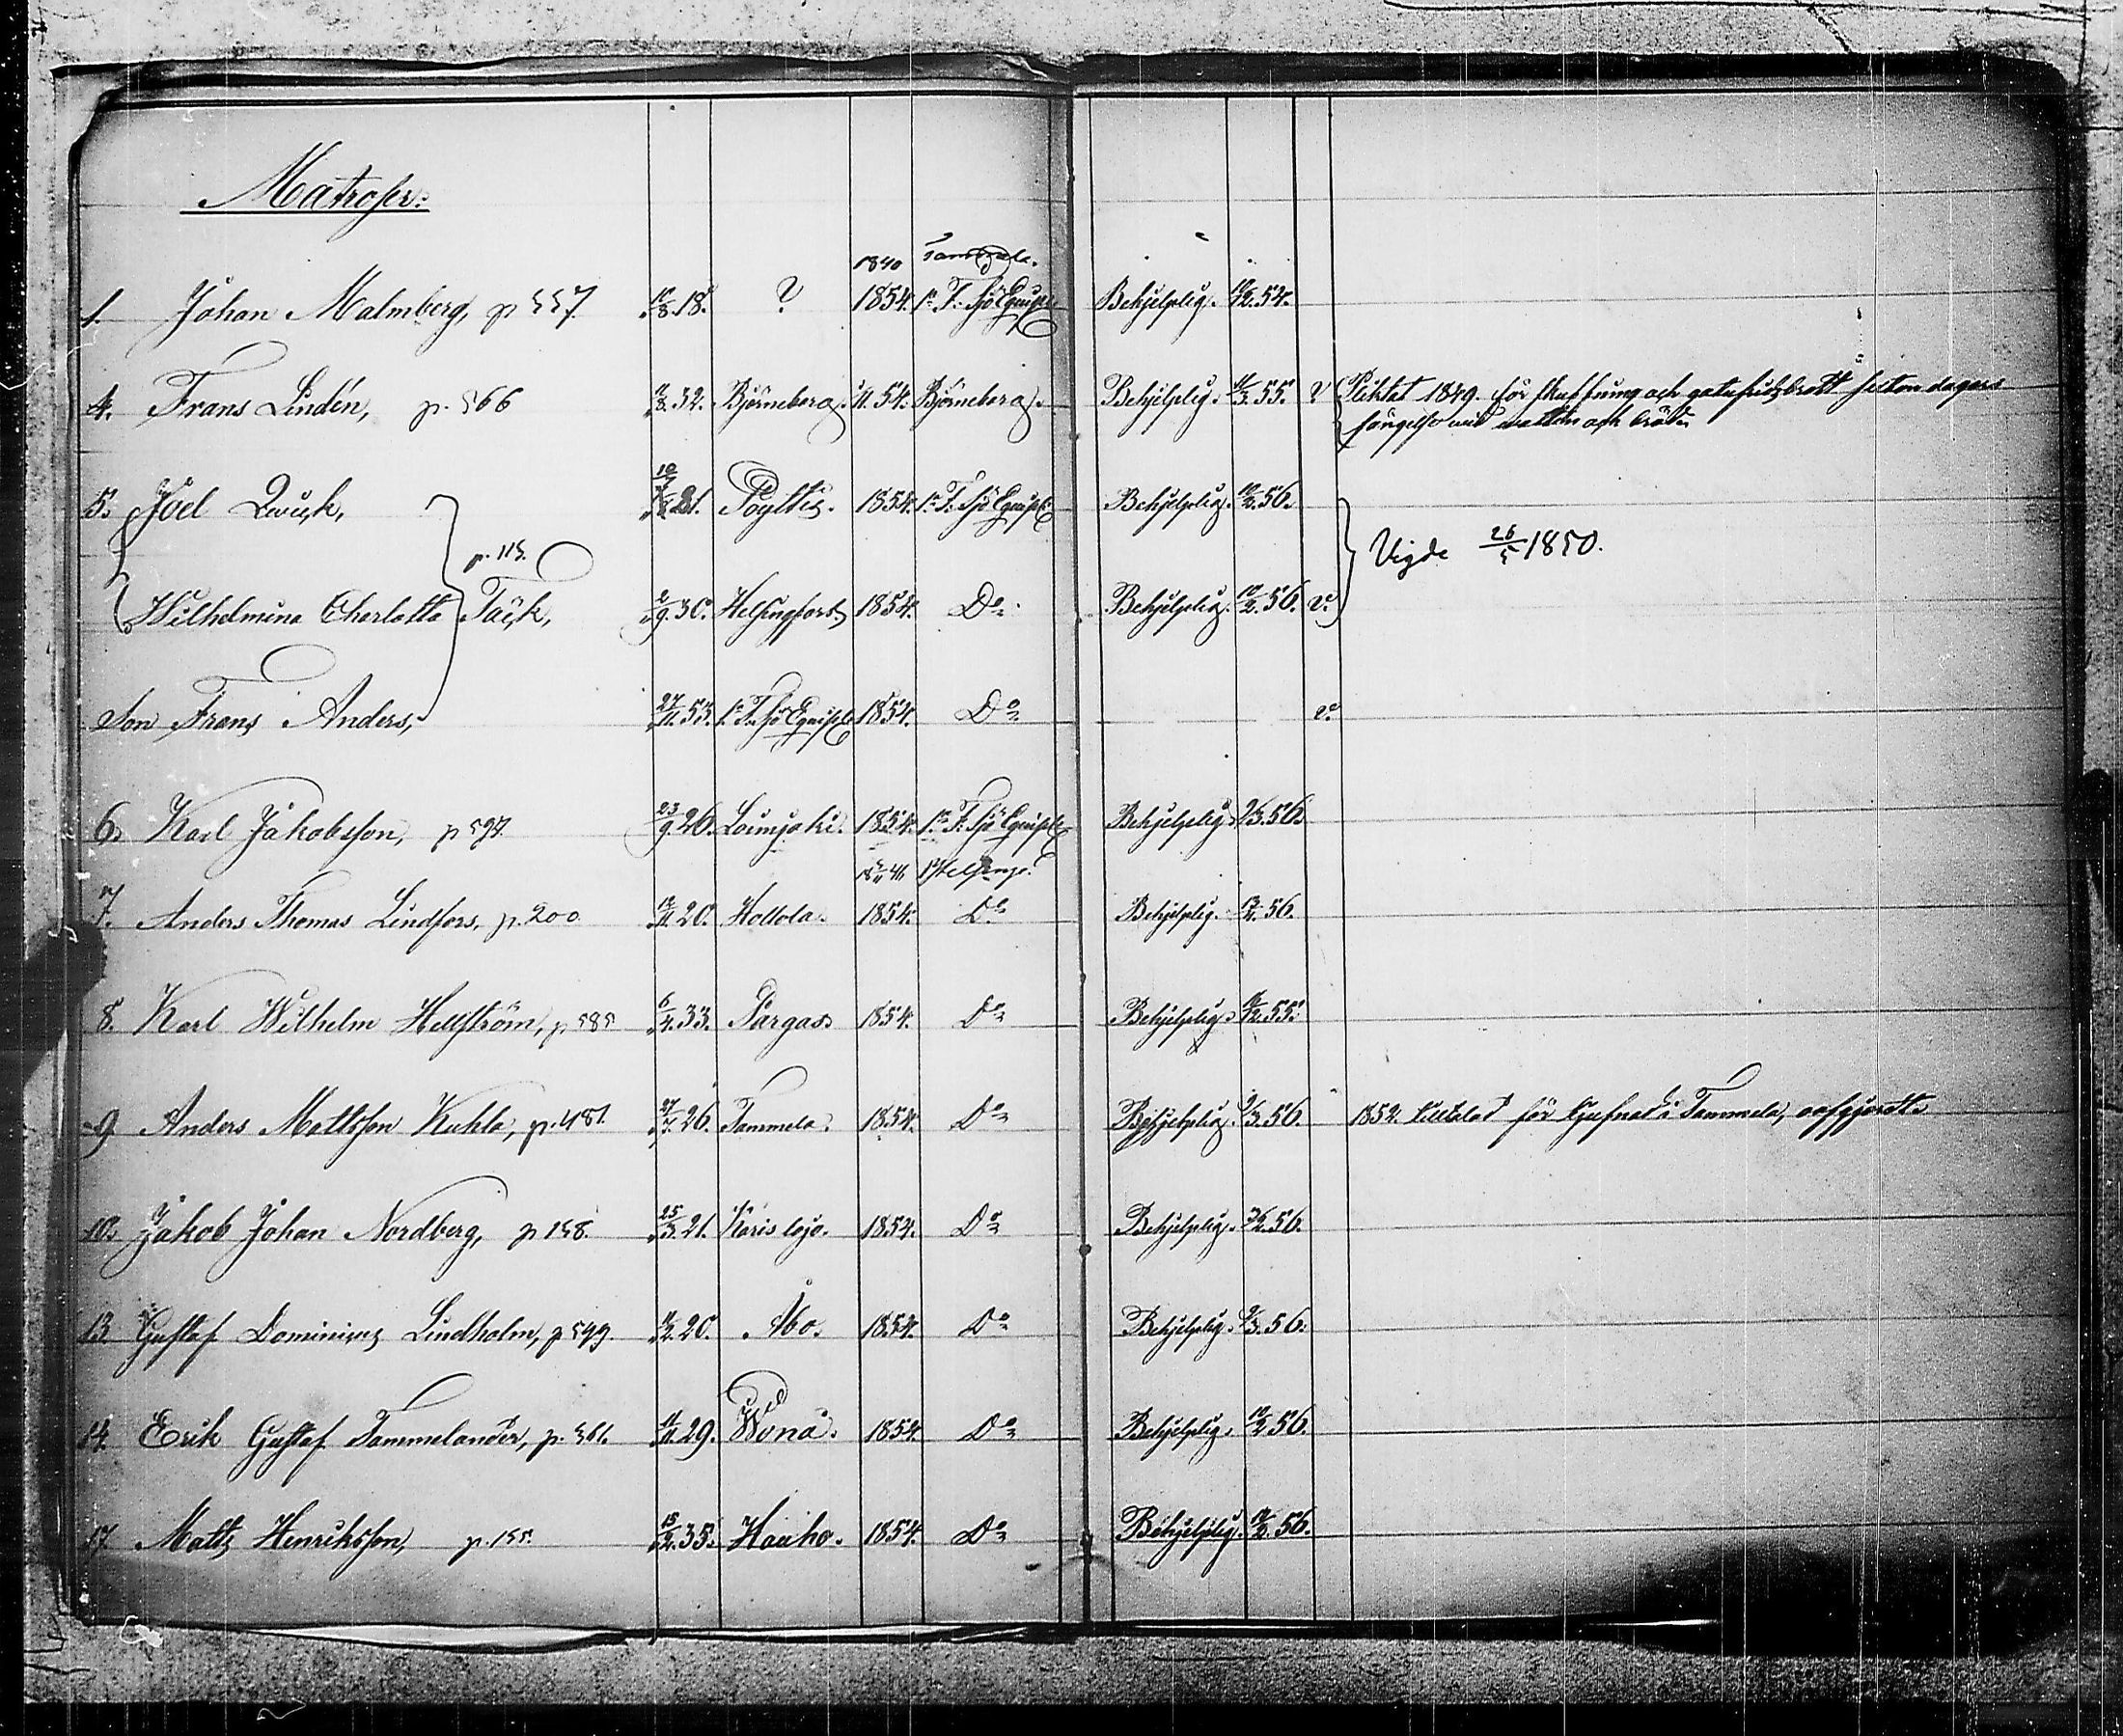 Matroser:
1840 Tammela.
1. Johan Malmberg, p 557. 10/8.18. ? 1854. 1a F. Sjö Equip. Behjelplig. 54.
4. Frans Lindén, p. 566 32. Björneborg. 54. Björneborg. Behjelplig. 55. v Pliktat 1849. för och sexton dagars
fängelse vid vatten och bröd.
5. Joel Qvick, 21. Pöyttis. 1854. 1a F. Sjö Equip. Behjelplig. 56.
p. 115. Vigde 26/5 1850.
Wilhelmina Charlotta Täck, 2/9.30. Helsingfors. 1854. Do Behjelplig. 10/2.56. v.
Son Frans Anders, 27/11.53. 1a F. Sjö Equip. 1854. Do v.
6. Karl Jakobsson, p 597. 23/9.26. Loimjoki. 1854. 1a F. Sjö Equip. Behjelplig. 2/3.56.
Helsinge.
7. Anders Thomas Lindfors, p. 200 20. Hollola. 1854. Do Behjelplig. 56.
8. Karl Wilhelm Hellström, p. 585 6/4.33. Pargas. 1854. Do Behjelplig. 55.
9 Anders Mattsson Kuhla, p. 481. 27/7.26. Tammela. 1854. Do Behjelplig. 2/3.56. 1854. för tjufnad i Tammela, oafgjordt.
10. Jakob Johan Nordberg, p 158. 25/3.21. Karislojo. 1854. Do Behjelplig. 56.
13 Gustaf Dominicus Lindholm, p 599 20. Åbo. 1854. Do Behjelplig. 56.
14. Erik Gustaf Tammelander, p. 561. 11/11.29. Wånå. 1854. Do Behjelplig. 10/2.56.
17. Matts Henriksson, p. 155. 15/2.35. Hauho. 1854. Do Behjelplig. 56.